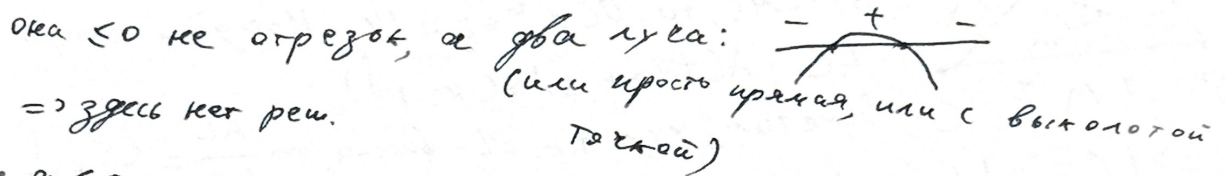 она ≤0 не отрезок, а два луча: − + −
(или прость прямая, или с выколотой
точкой)
=> здесь нет реш.